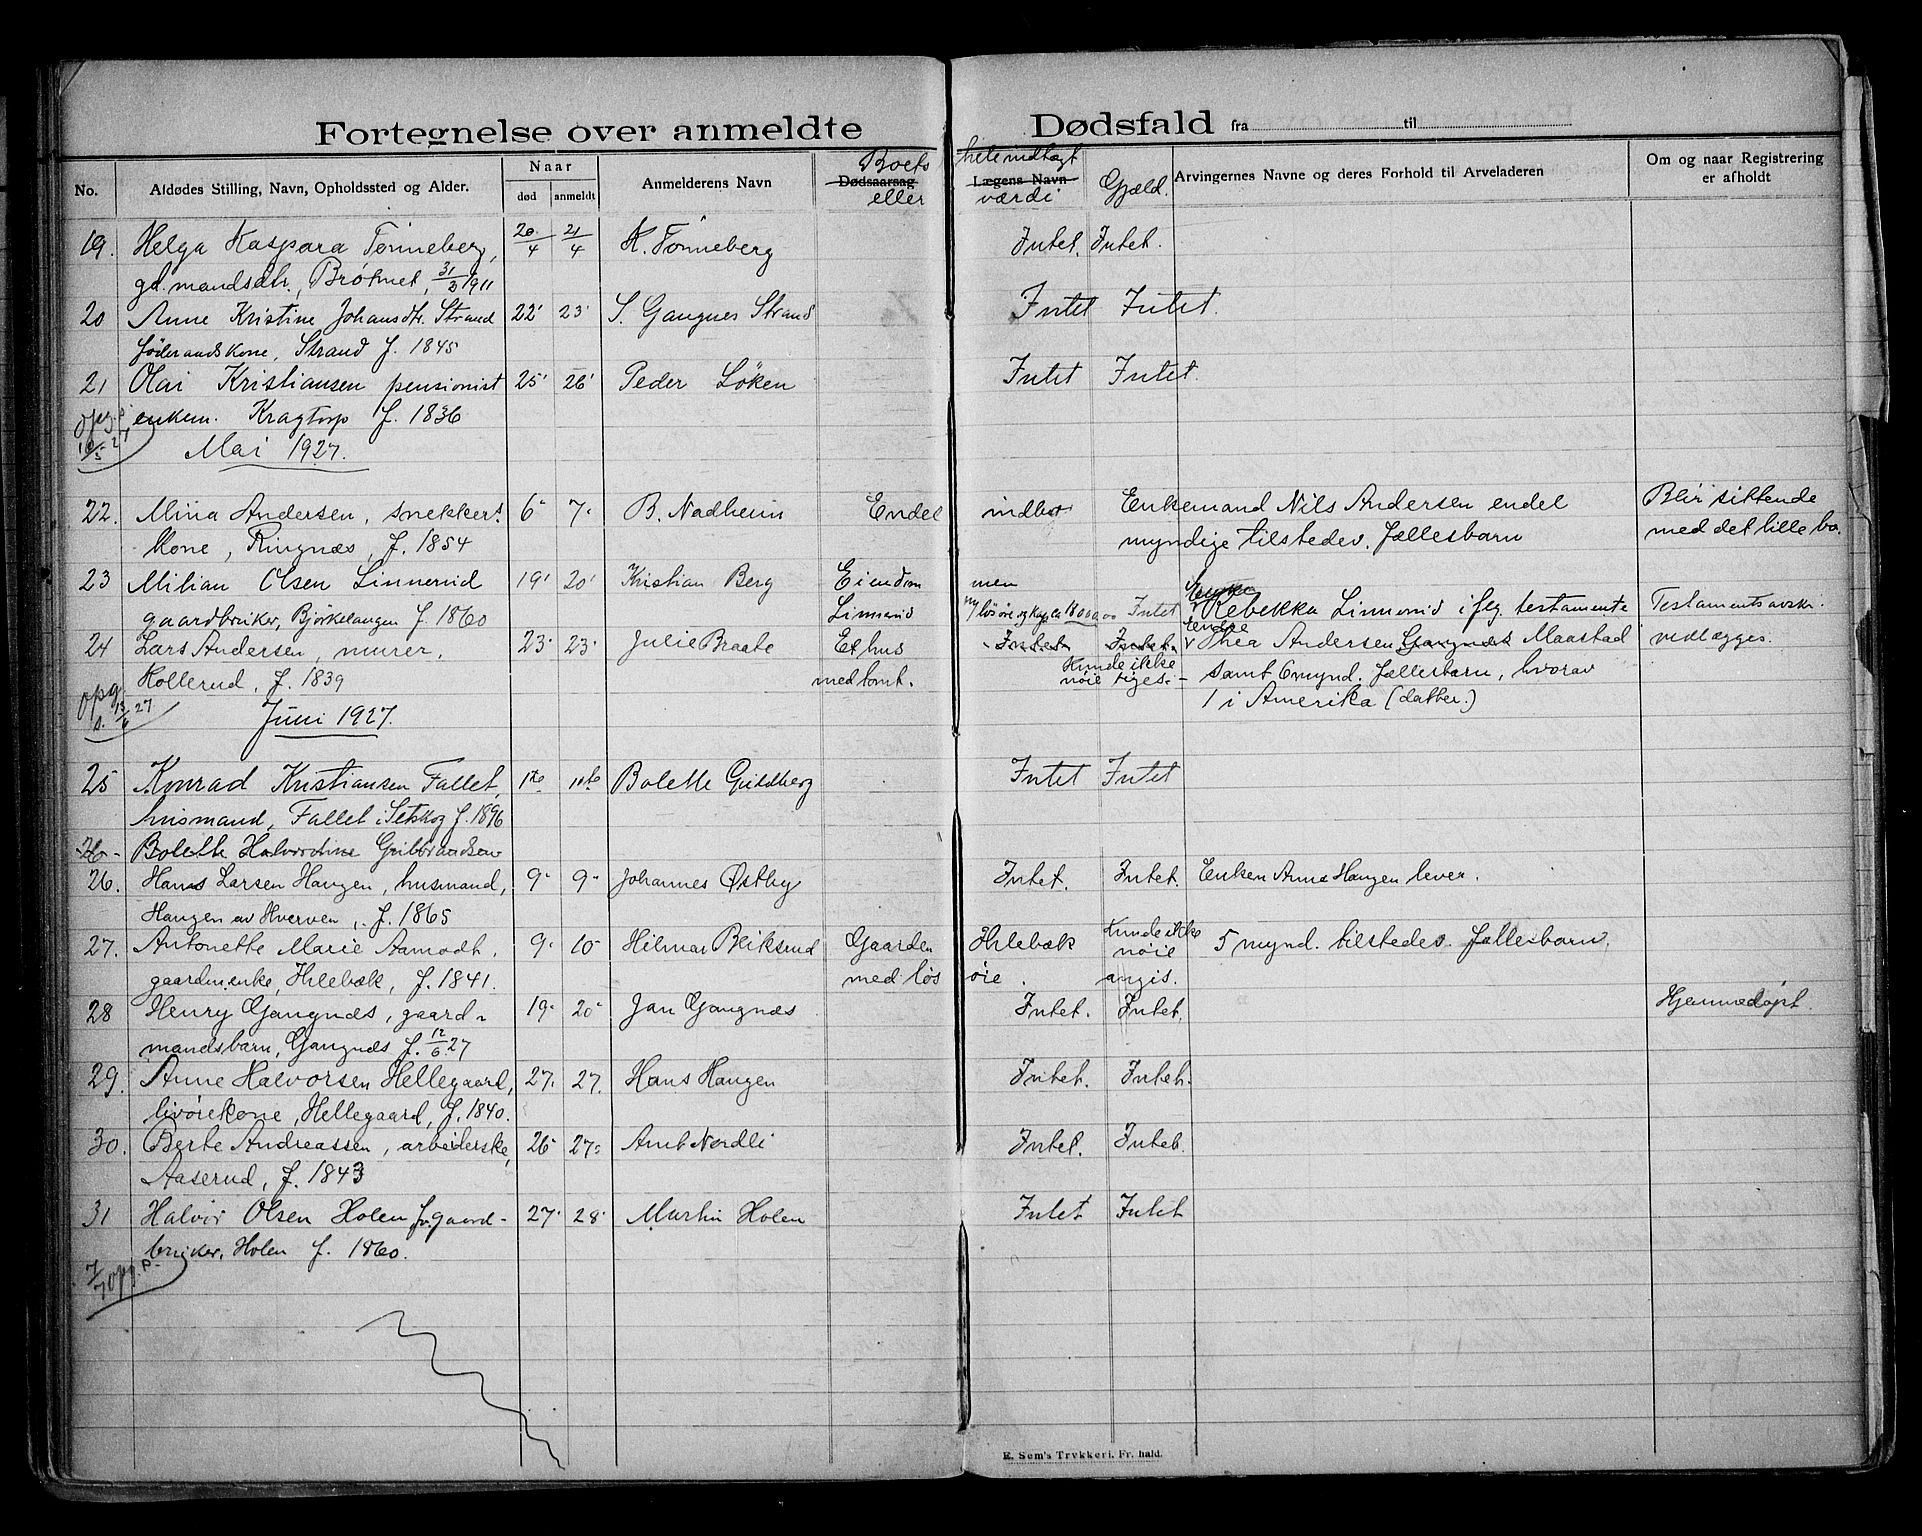 Fortegnelse over anmeldte Dødsfald fra til
No. Afdødes Stilling, Navn, Opholdssted og Alder. Naar Anmelderens Navn Boets hele indtægt
død anmeldt Dødsaarsag eller Lægens Navn værdi Gjæld. Arvingernes Navne og deres Forhold til Arveladeren Om og naar Registrering er afholdt
19. Helga Kaspara Tønneberg, 20/4 21/4 K. Tønneberg Intet. Intet.
gd.mandsdtr., Brøtmet, 31/3 1911
20 Anne Kristine Johansdtr. Strand 22' 23' S. Gangnes Strand Intet Intet.
føderaadskone, Strand f. 1845
21 Olai Kristiansen pensionist 25' 26' Peder Løken Intet Intet.
enkem. Kragtorp f. 1836
opg. s. 10/5 27
Mai 1927.
22. Mina Andersen, snekkers. 6- 7- B. Nadheim Endel indbo Enkemand Nils Andersen endel Blir sittende
kone, Ringnæs, f. 1854 myndige tilstedev. fællesbarn med det lille bo.
23 Milian Olsen Linnerud 19' 20' Kristian Berg Eiendom men Enke
gaardbruker, Bjørkelangen f. 1860 Linnerud m/løsøre og kap ca 18000,00 Intet Rebekka Linnerud i flg. testamente Testamentsavskr.
24 Lars Andersen, murer, 23- 23- Julie Braate Et hus Intet Intet. Enke Thea Andersen Gangnæs Maastad vedlægges.
Kollerud, f. 1839 med tomt. Kunde ikke nøie opges. - samt 6 mynd. fællesbarn, hvorav
opg. s. 13/6 27
1 i Amerika (datter.)
Juni 1927.
25 Konrad Kristiansen Fallet, 1ste 11te Bolette Guldberg Intet Intet
husmand, Fallet i Setskog f. 1896
26 Bolette Halvordine Gulbrandsen
26. Hans Larsen Haugen, husmand, 9- 9- Johannes Østby Intet. Intet. Enken Anne Haugen lever.
Haugen av Hverven, f. 1865
27. Antonette Marie Aamodt, 9- 10- Hilmar Bliksrud Gaarden Ihlebæk Kunde ikke nøie 5 mynd. tilstedev. fællesbarn.
gaardm.enke, Ihlebæk, f. 1841. med løsøre. angis.
28 Henry Gangnæs, gaard- 19- 20- Jan Gangnæs Intet. Intet. Hjemmedøpt.
mandsbarn, Gangnæs f. 12/6 27
29. Anne Halvorsen Hellegaard, 27. 27. Hans Haugen Intet. Intet.
livørekone, Hellegaard, f. 1840.
30. Berte Andreassen, arbeiderske, 26- 27- Amt Nordli Intet. Intet.
Aaserud, f. 1843
31 Halvor Olsen Holen fv. gaard- 27' 28' Martin Holen Intet Intet
bruker, Holen f. 1860.
7/7 opg. s.
E. Sem's Trykkeri, Fr.hald.